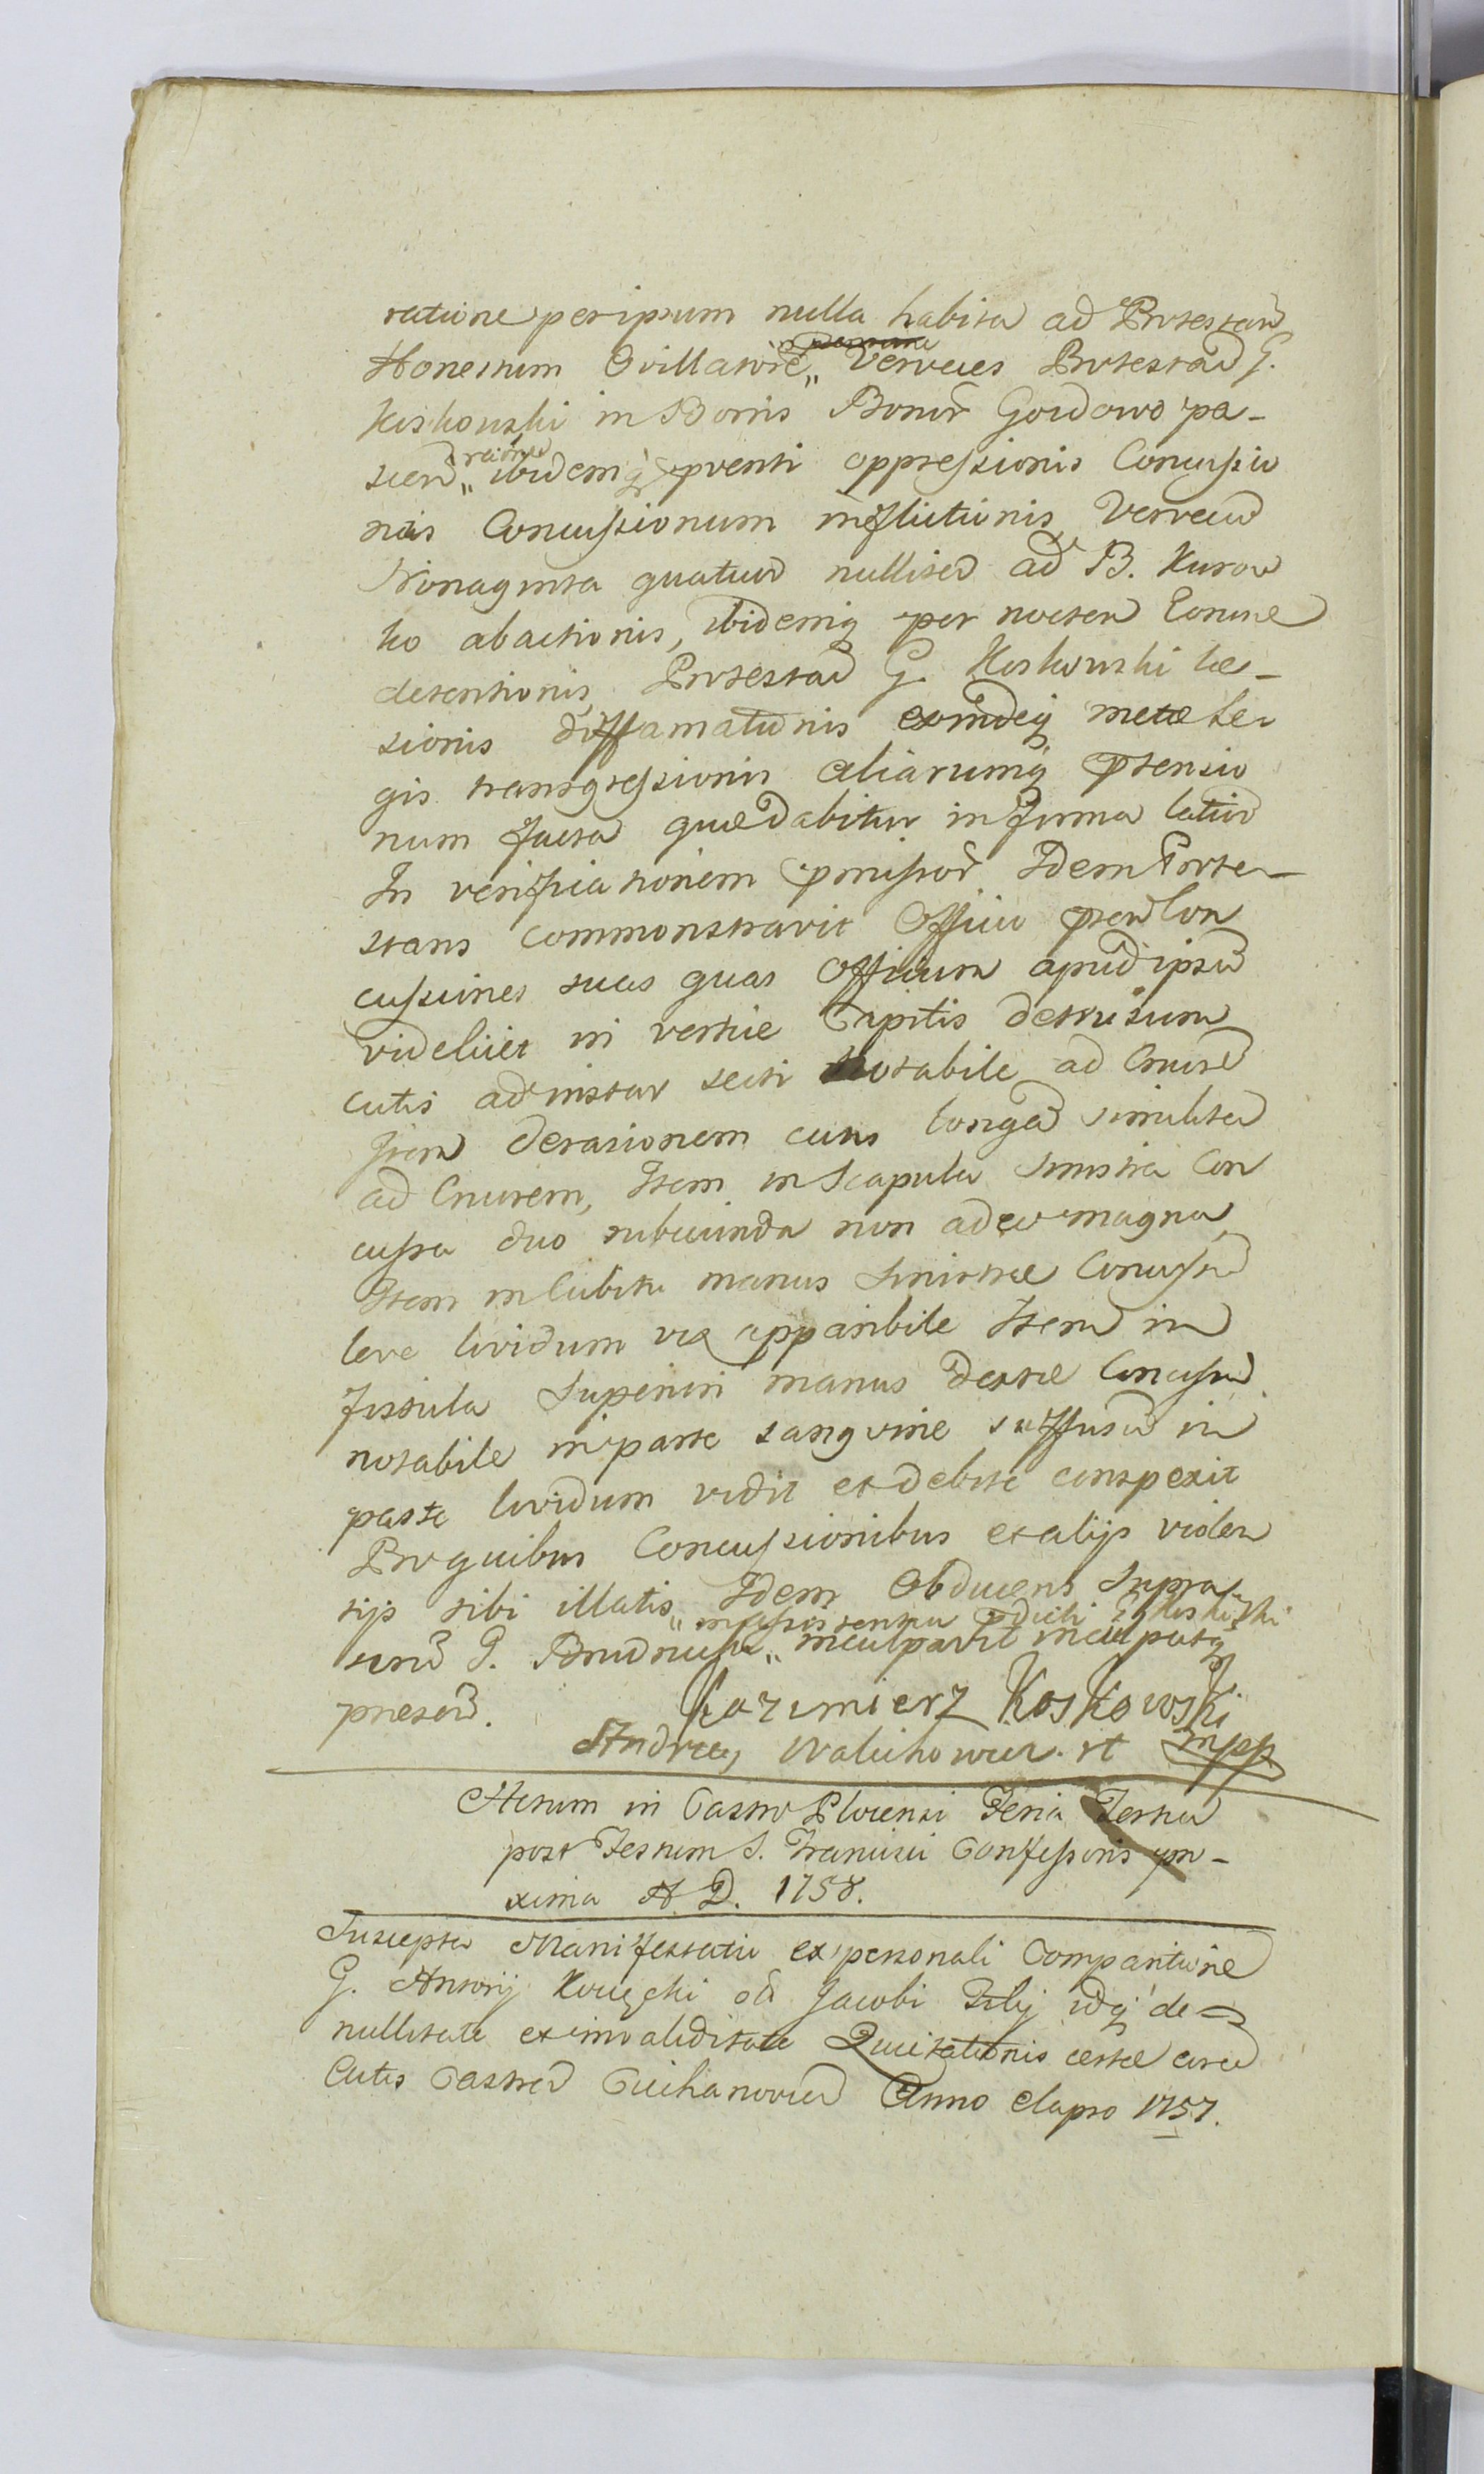 ratione per ipsum nulla habita ad Protestañ
Honestum Ovillatore˜ „ Verveces Protestañ G.
Koskowski in Bonis Bonor˜ Gordowo pa-
scen˜ „ raõne ibidemq̃ pventi oppressionis Concussio
nis Concussionum inflictionis Vervecũ
Nonaginta quatuor nulliter ad B. Kurow
ko abactionis, ibidemq̃ per noctem
detentionis, Protestañ G. Koskowski lae-
sionis diffamationis eorundeq̃ metae le-
gis transgressionis aliarumq̃ ptensio
num facta quae dabitur in forma latiori
In verificationem pmissor˜ Idem Protes-
stans commonstravit Officio pñti Con
cussiones suas quas Officium apud ipsũ
videlicet in vertice Capitis detrusum
cutis ad instar secti notabile ad Cruore˜
Item derasionem cutis longã similiter
ad Cruorem, Item in Scapula Sinistra Con
cussa duo rubicunda non adeo magna
Item in Cubitu manus Sinistrae Concussũ
leve lividum vix apparibile Item in
fistula Superiori manus dextrae Concussũ
notabile in parte sangvine suffusũ in
parte lividum vidit et debite conspexit
Pro quibus Concussionibus et alijs violen
tijs sibi illatis Idem Obducens Supra
„ in assistentia pdicti G. Koskowski
scrip̃ G. „ inculpavit inculpatq̃
praesen˜.
Kazimierz Koskowski
Andreas Walichowicz st mpp
Actum in Castro Plocensi Feria Tertia
post Festum S. Francisci Confessoris pro-
xima A. D. 1758.
Suscepta Manifestatio ex personali Comparitione
G. Antonij olĩ Jacobi Filij idq̃ de
nullitate et invaliditate Quietationis certae corã
Actis Castreñ Ciechanovieñ Anno elapso 1757.